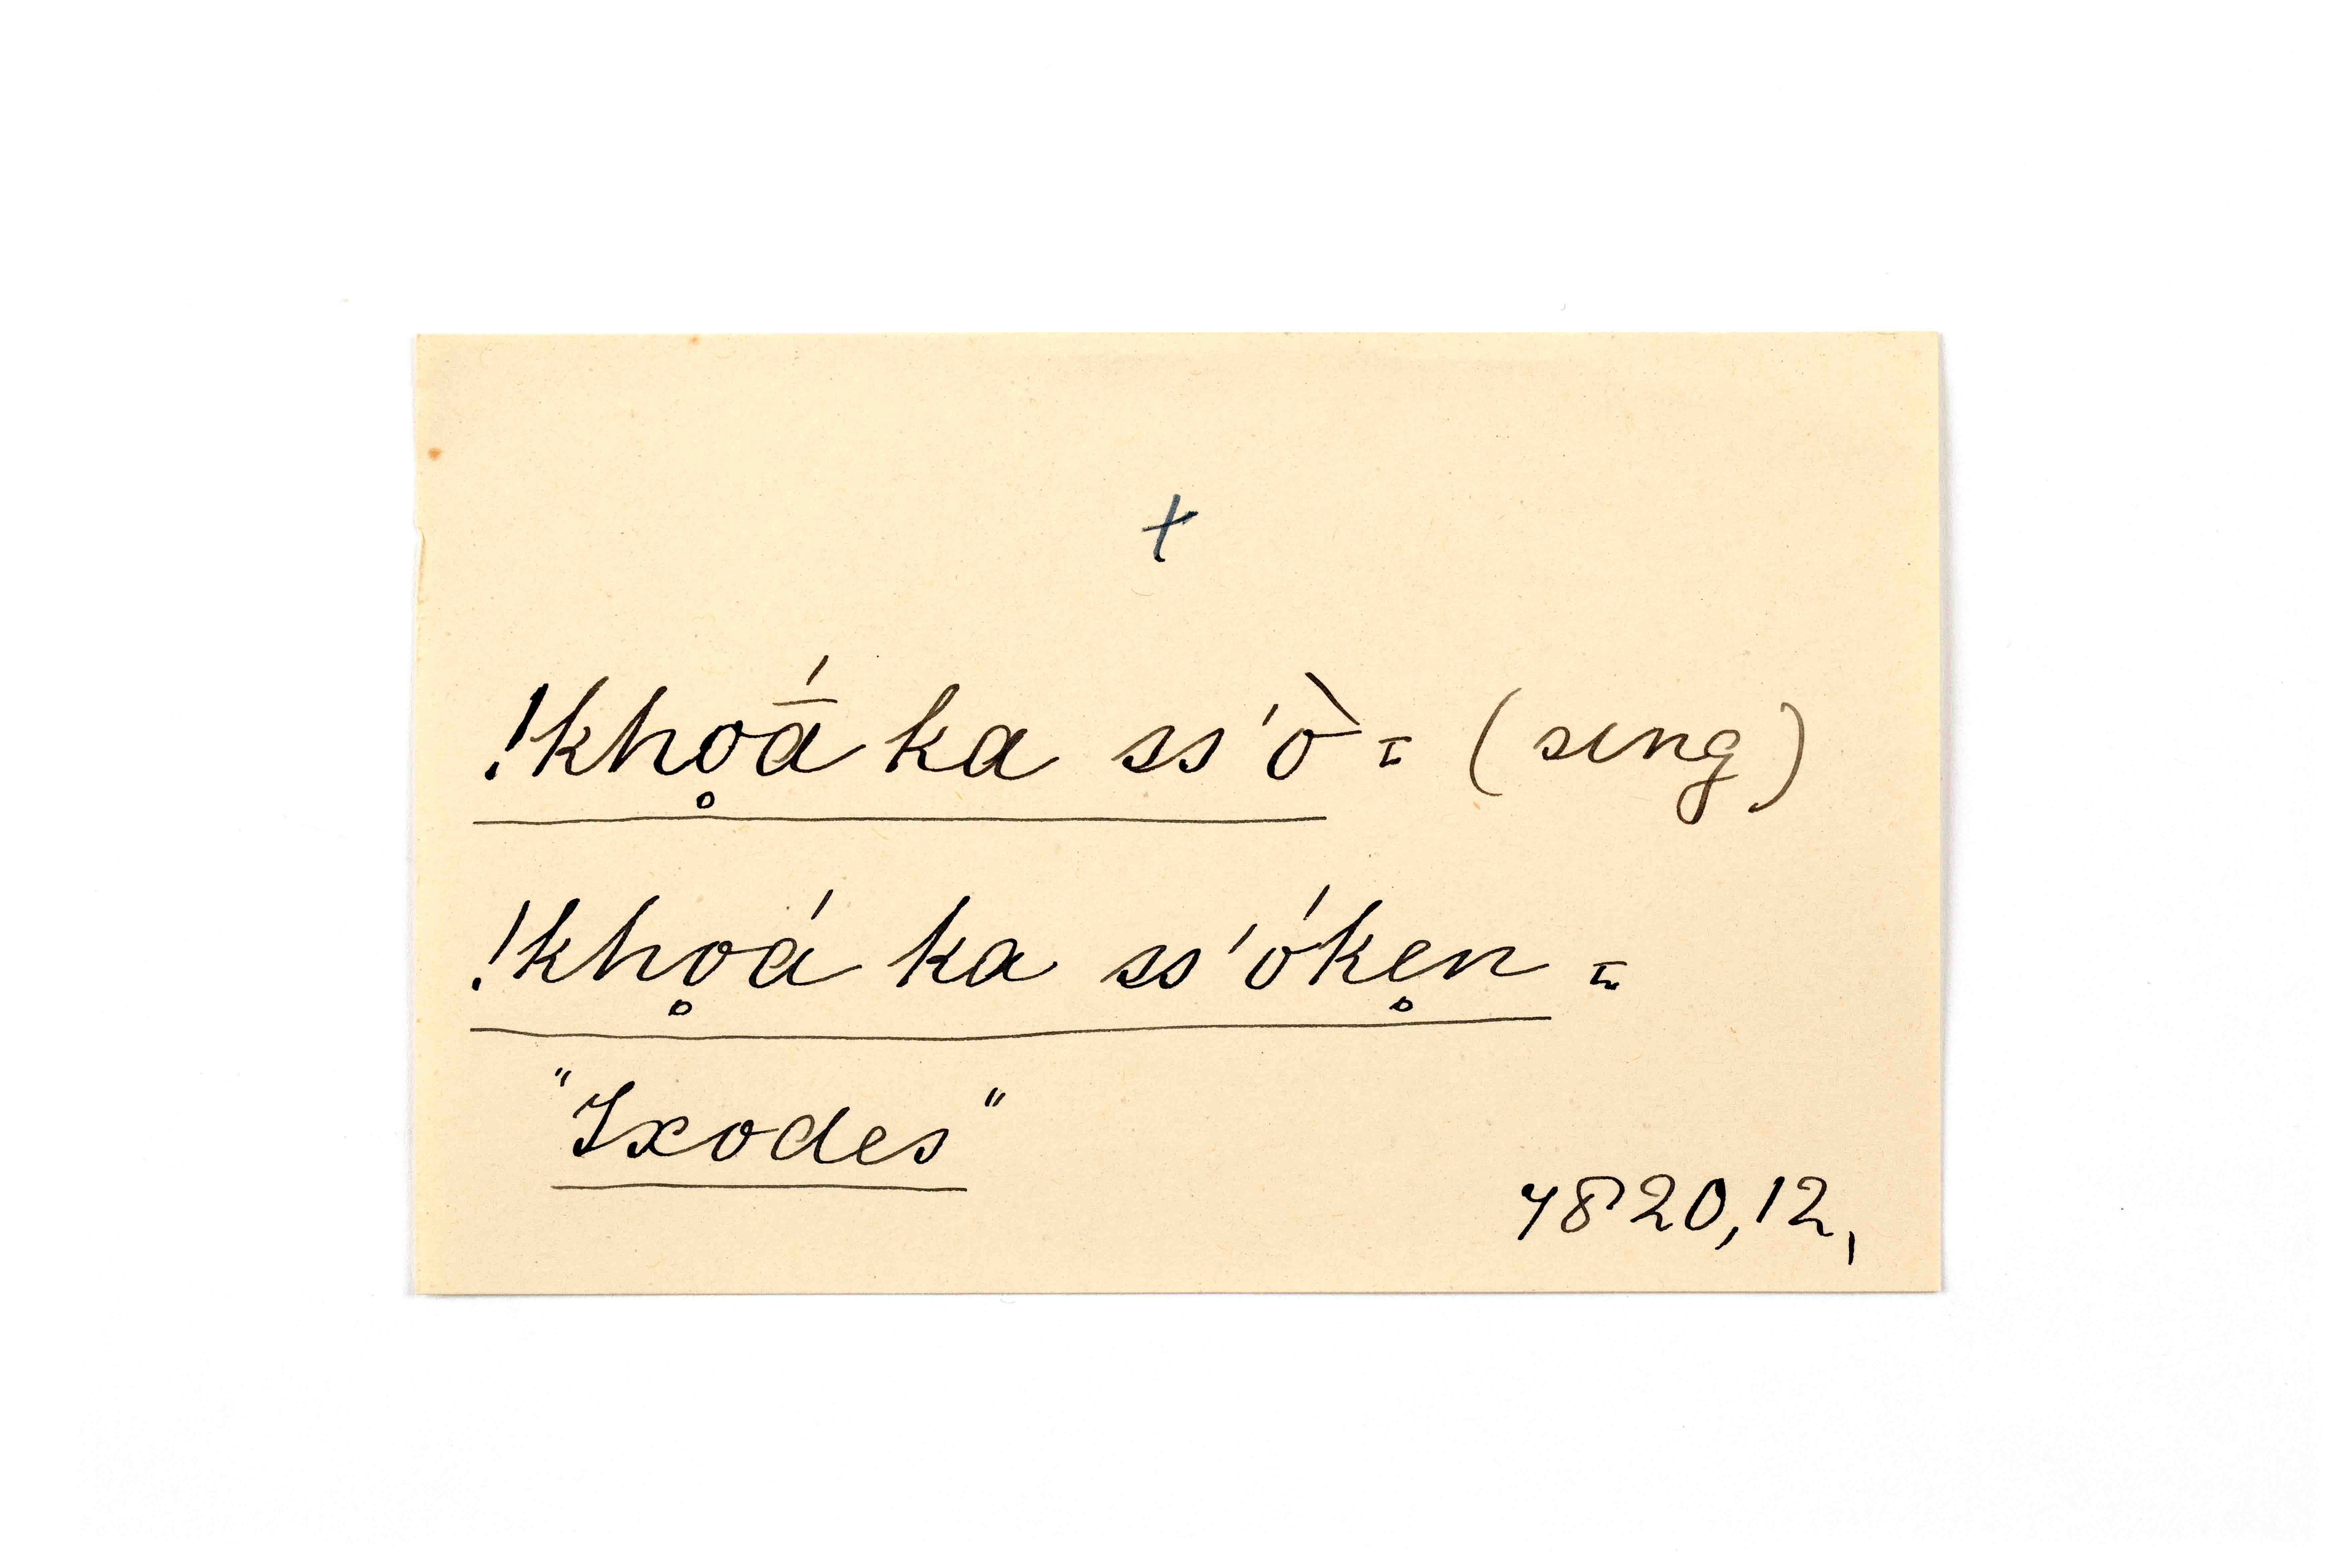 +
!kho̥ā́ ka ss'ò = (sing)
!kho̥á ka ss'óke̥n =
"Ixodes"
7820,12,